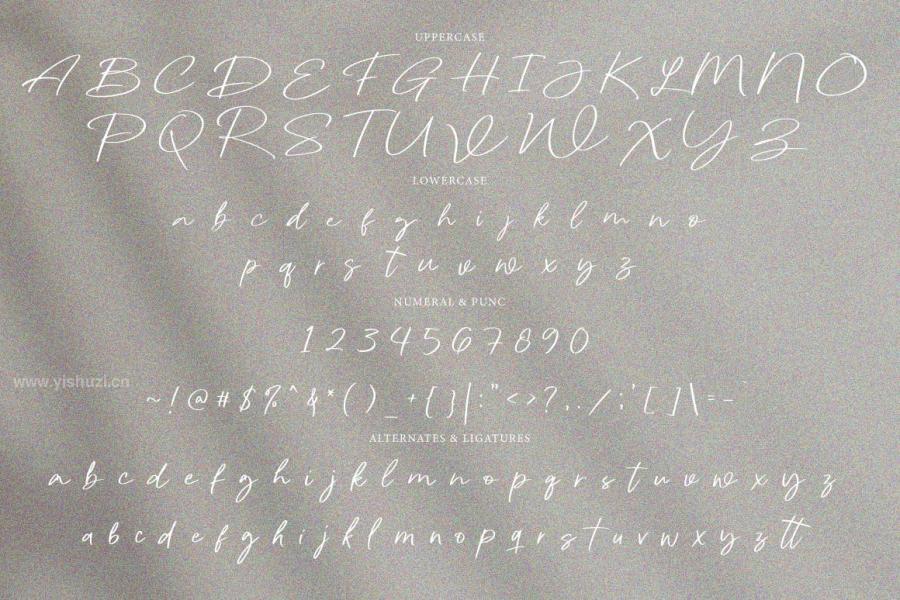 UPPERCASE
A B C D E F G H I J K L M N O
P Q R S T U V W X Y Z
LOWERCASE
a b c d e f g h i j k l m n o
p q r s t u v w x y z
NUMERAL & PUNC
1 2 3 4 5 6 7 8 9 0
www.yishuzi.cn
~ ! @ # $ % ^ & * ( ) _ + { } | : " < > ? , . / ; ' [ ] \ = -
ALTERNATES & LIGATURES
a b c d e f g h i j k l m n o p q r s t u v w x y z
a b c d e f g h i j k l m n o p q r s t u v w x y z tt